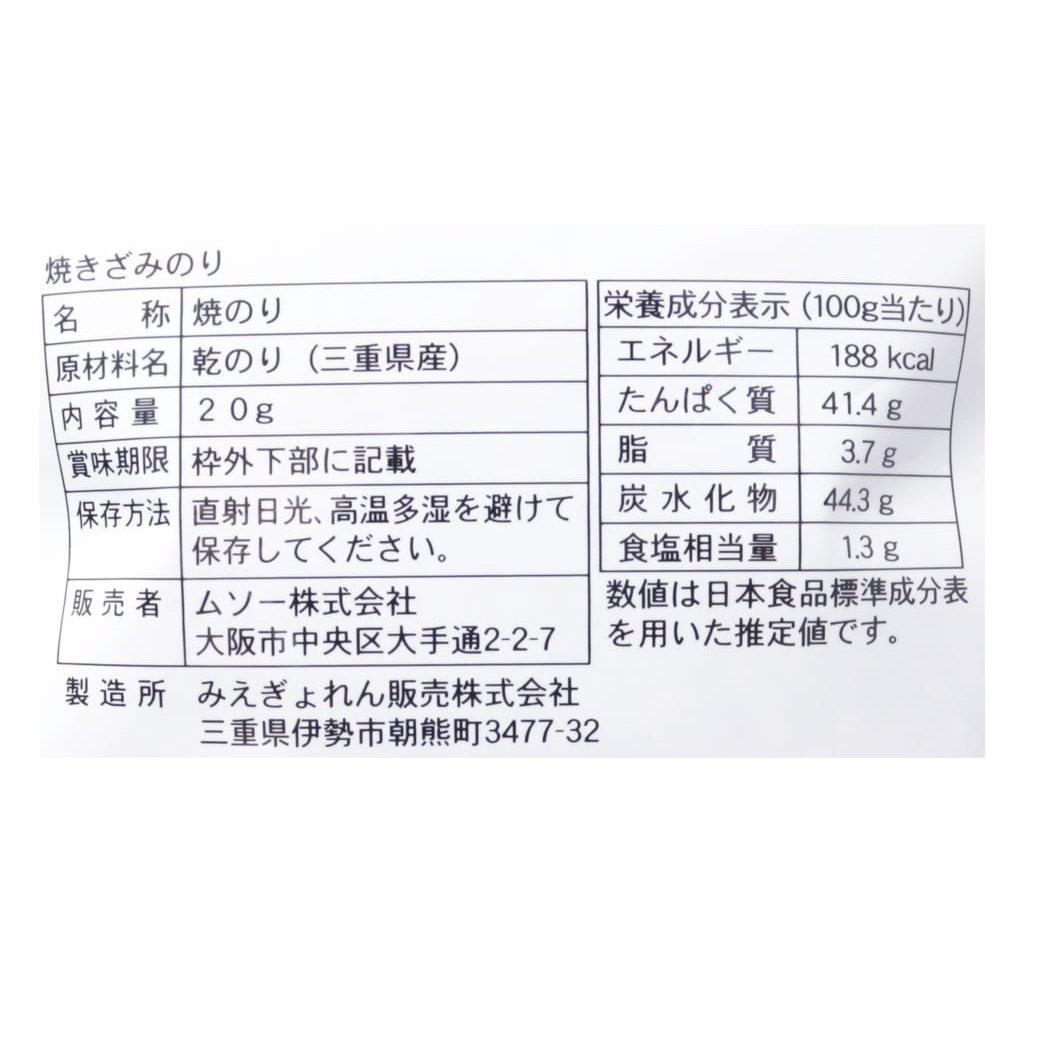 焼きざみのり
名称 焼のり
原材料名 乾のり（三重県産）
内容量 20g
賞味期限 枠外下部に記載
保存方法 直射日光、高温多湿を避けて
保存してください。
販売者 ムソー株式会社
大阪市中央区大手通2-2-7
製造所 みえぎょれん販売株式会社
三重県伊勢市朝熊町3477-32
栄養成分表示（100g当たり）
エネルギー 188 kcal
たんぱく質 41.4 g
脂質 3.7 g
炭水化物 44.3 g
食塩相当量 1.3 g
数値は日本食品標準成分表
を用いた推定値です。